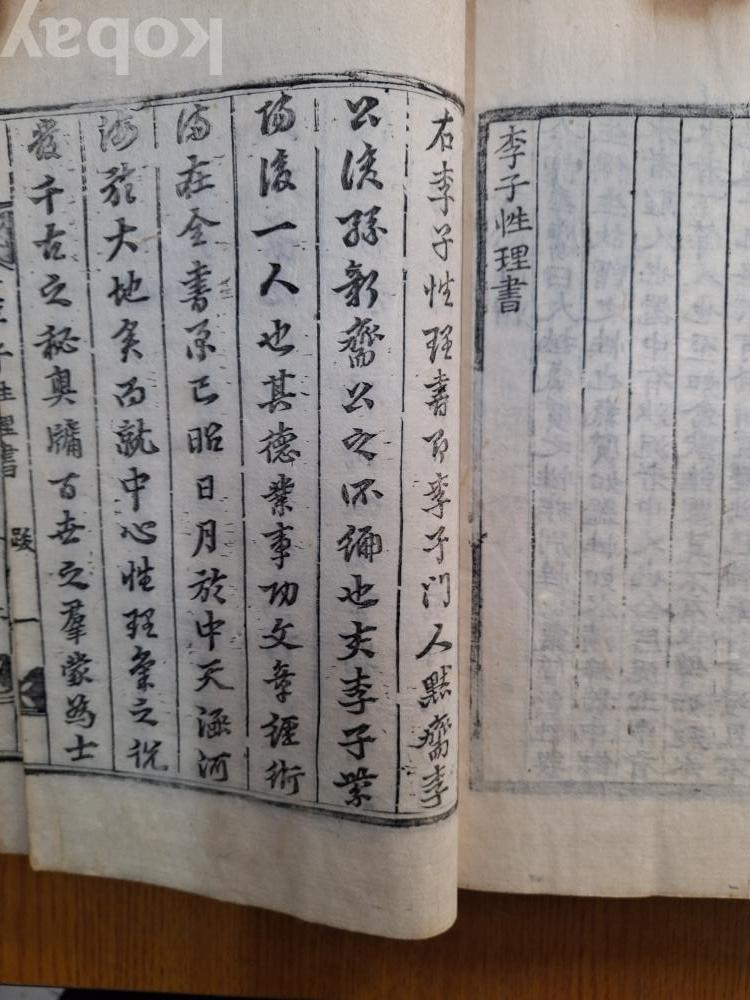 kobay
李子性理書
右李子性理書即李子門人默齋李
公後孫新齋公之所編也夫李子紫
陽後一人也其德業事功文章經術
備在全書已昭日月於中天涵河
海於大地矣而就中心性理氣之說
發千古之秘奧牖百世之羣蒙為士
李子性理書 跋 一